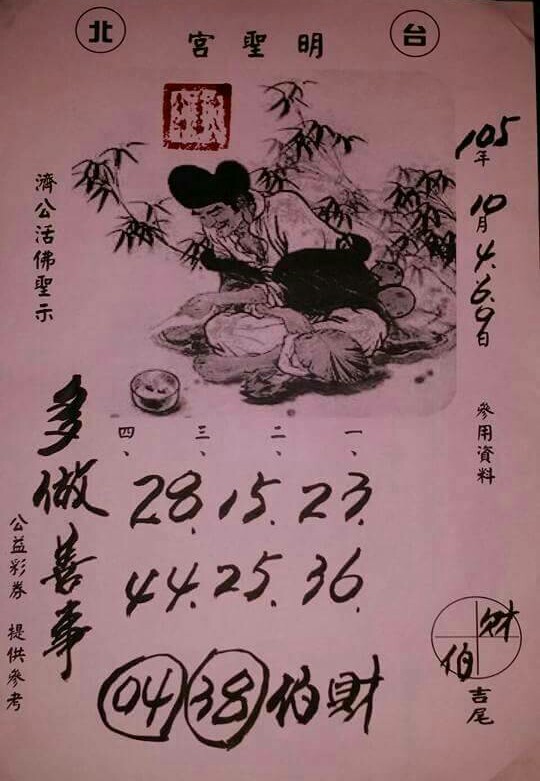 台北
明聖宮
105年10月4.6.9日
參用資料
財
伯
吉尾
濟公活佛聖示
一、二、三、四、
28.15.23.
44.25.36.
04 38 伯財
多做善事
公益彩券 提供參考